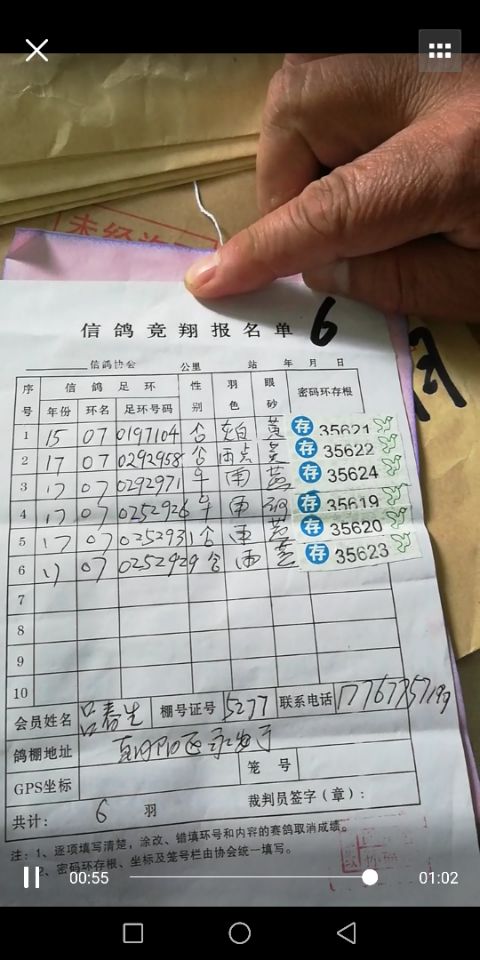 未经
信鸽竞翔报名单 6
信鸽协会 公里 站 年 月 日
序号 信鸽足环 性别 羽色 眼砂 密码环存根
年份 环名 足环号码
1 15 07 0197104 合 白 黄 存 35621
2 17 07 0292958 合 雨点 黄 存 35622
3 17 07 0292971 雨 存 35624
4 17 07 0252926 雨 存 35619
5 17 07 0252931 合 雨 存 35620
6 17 07 0252929 合 雨 存 35623
7
8
9
10
会员姓名 吕春生 棚号证号 5277 联系电话
鸽棚地址
GPS坐标 笼号
共计: 6 羽 裁判员签字(章):
注:1、逐项填写清楚,涂改、错填环号和内容的赛鸽取消成绩。
2、密码环存根、坐标及笼号栏由协会统一填写。
00:55 01:02